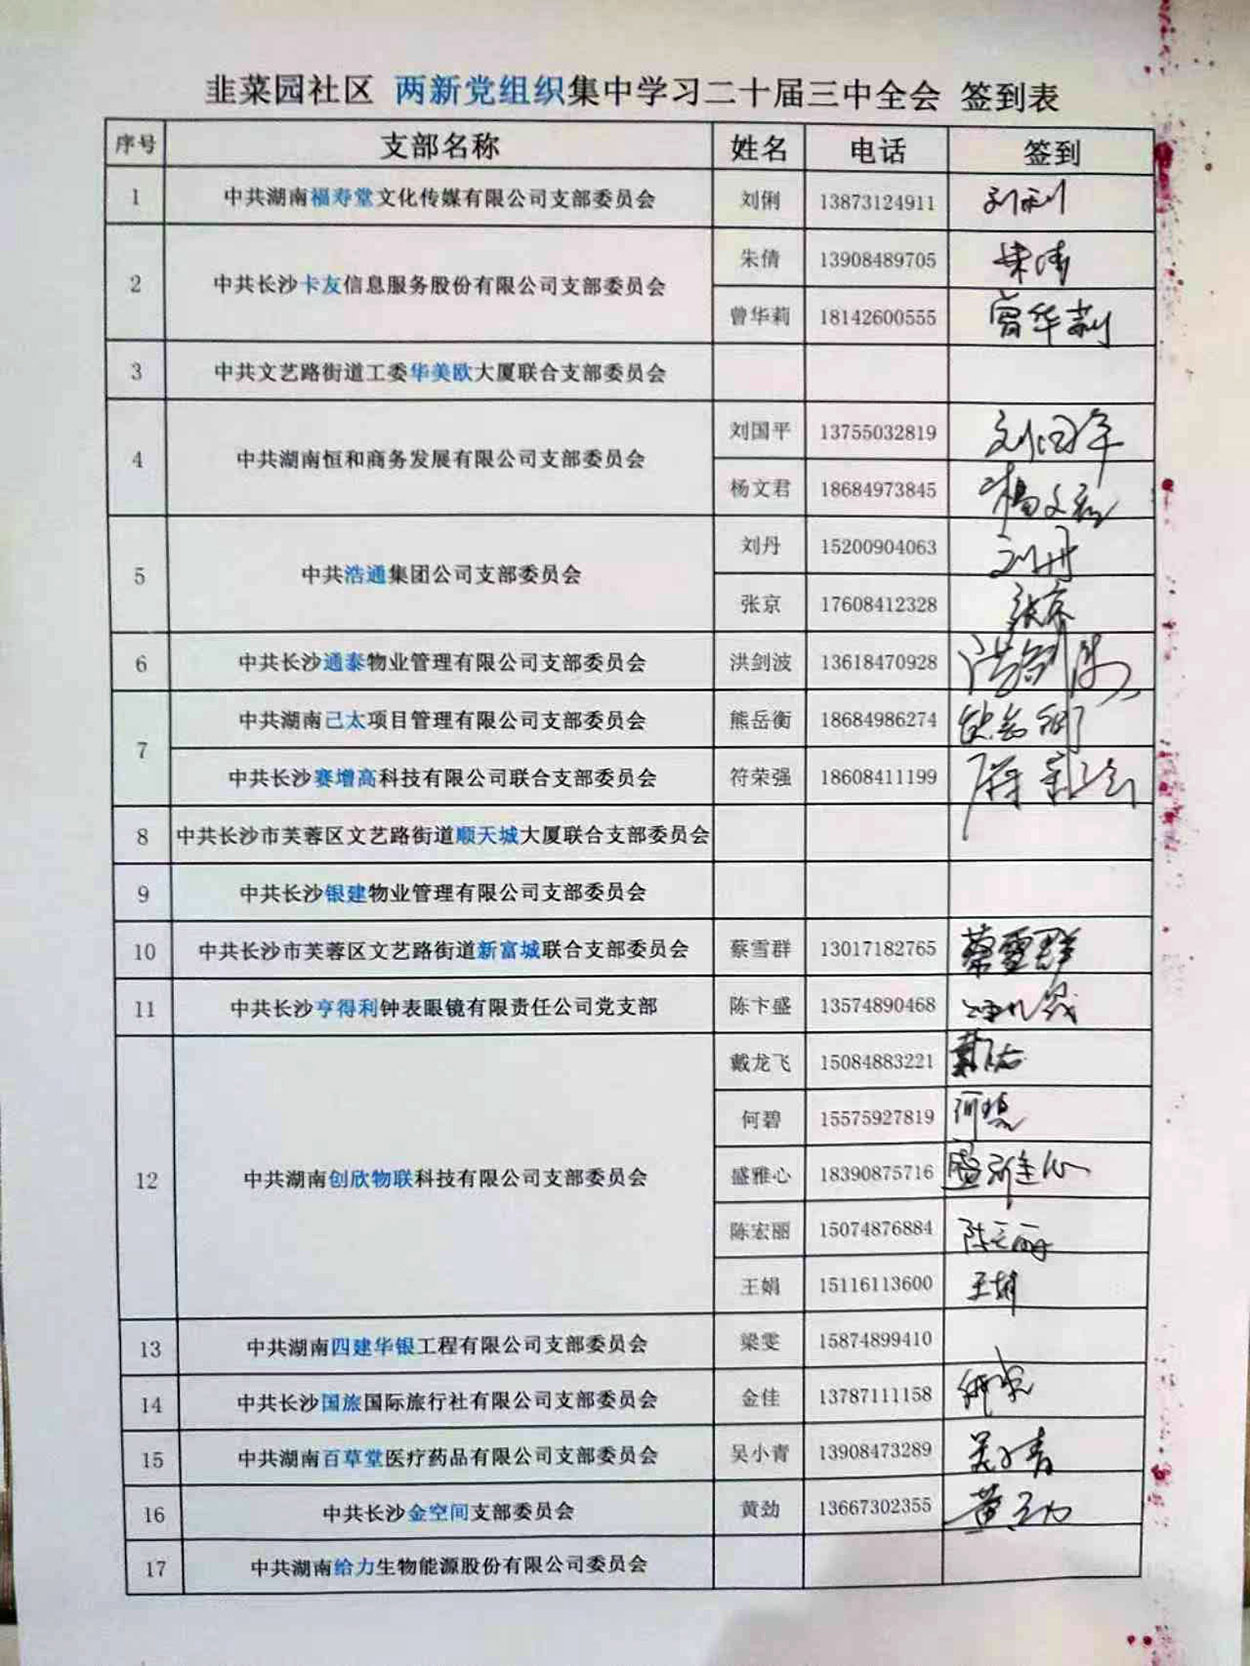 韭菜园社区 两新党组织集中学习二十届三中全会 签到表
序号 支部名称 姓名 电话 签到
1 中共湖南福寿堂文化传媒有限公司支部委员会 刘俐 13873124911 刘利
2 中共长沙卡友信息服务股份有限公司支部委员会 朱倩 13908489705 朱倩
曾华莉 18142600555 曾华莉
3 中共文艺路街道工委华美欧大厦联合支部委员会
4 中共湖南恒和商务发展有限公司支部委员会 刘国平 13755032819 刘国平
杨文君 18684973845 杨文君
5 中共浩通集团公司支部委员会 刘丹 15200904063 刘丹
张京 17608412328 张京
6 中共长沙通泰物业管理有限公司支部委员会 洪剑波 13618470928 洪剑波
7 中共湖南己太项目管理有限公司支部委员会 熊岳衡 18684986274
中共长沙赛增高科技有限公司联合支部委员会 符荣强 18608411199
8 中共长沙市芙蓉区文艺路街道顺天城大厦联合支部委员会
9 中共长沙银建物业管理有限公司支部委员会
10 中共长沙市芙蓉区文艺路街道新富城联合支部委员会 蔡雪群 13017182765 蔡雪群
11 中共长沙亨得利钟表眼镜有限责任公司党支部 陈卞盛 13574890468
12 中共湖南创欣物联科技有限公司支部委员会 戴龙飞 15084883221
何碧 15575927819 何碧
盛雅心 18390875716 盛雅心
陈宏丽 15074876884 陈宏丽
王娟 15116113600 王娟
13 中共湖南四建华银工程有限公司支部委员会 梁雯 15874899410
14 中共长沙国旅国际旅行社有限公司支部委员会 金佳 13787111158
15 中共湖南百草堂医疗药品有限公司支部委员会 吴小青 13908473289 吴小青
16 中共长沙金空间支部委员会 黄劲 13667302355 黄劲
17 中共湖南给力生物能源股份有限公司委员会